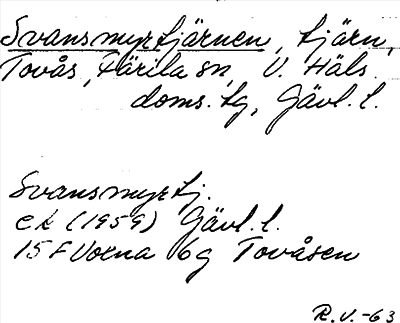 Svansmyrtjärnen, tjärn,
Tovås, Färila sn, V. Häls.
doms. tg, Gävl. l.
Svansmyrtj.
ek (1959) Gävl. l.
15 F Voxna 6g Tovåsen
R.V.-63